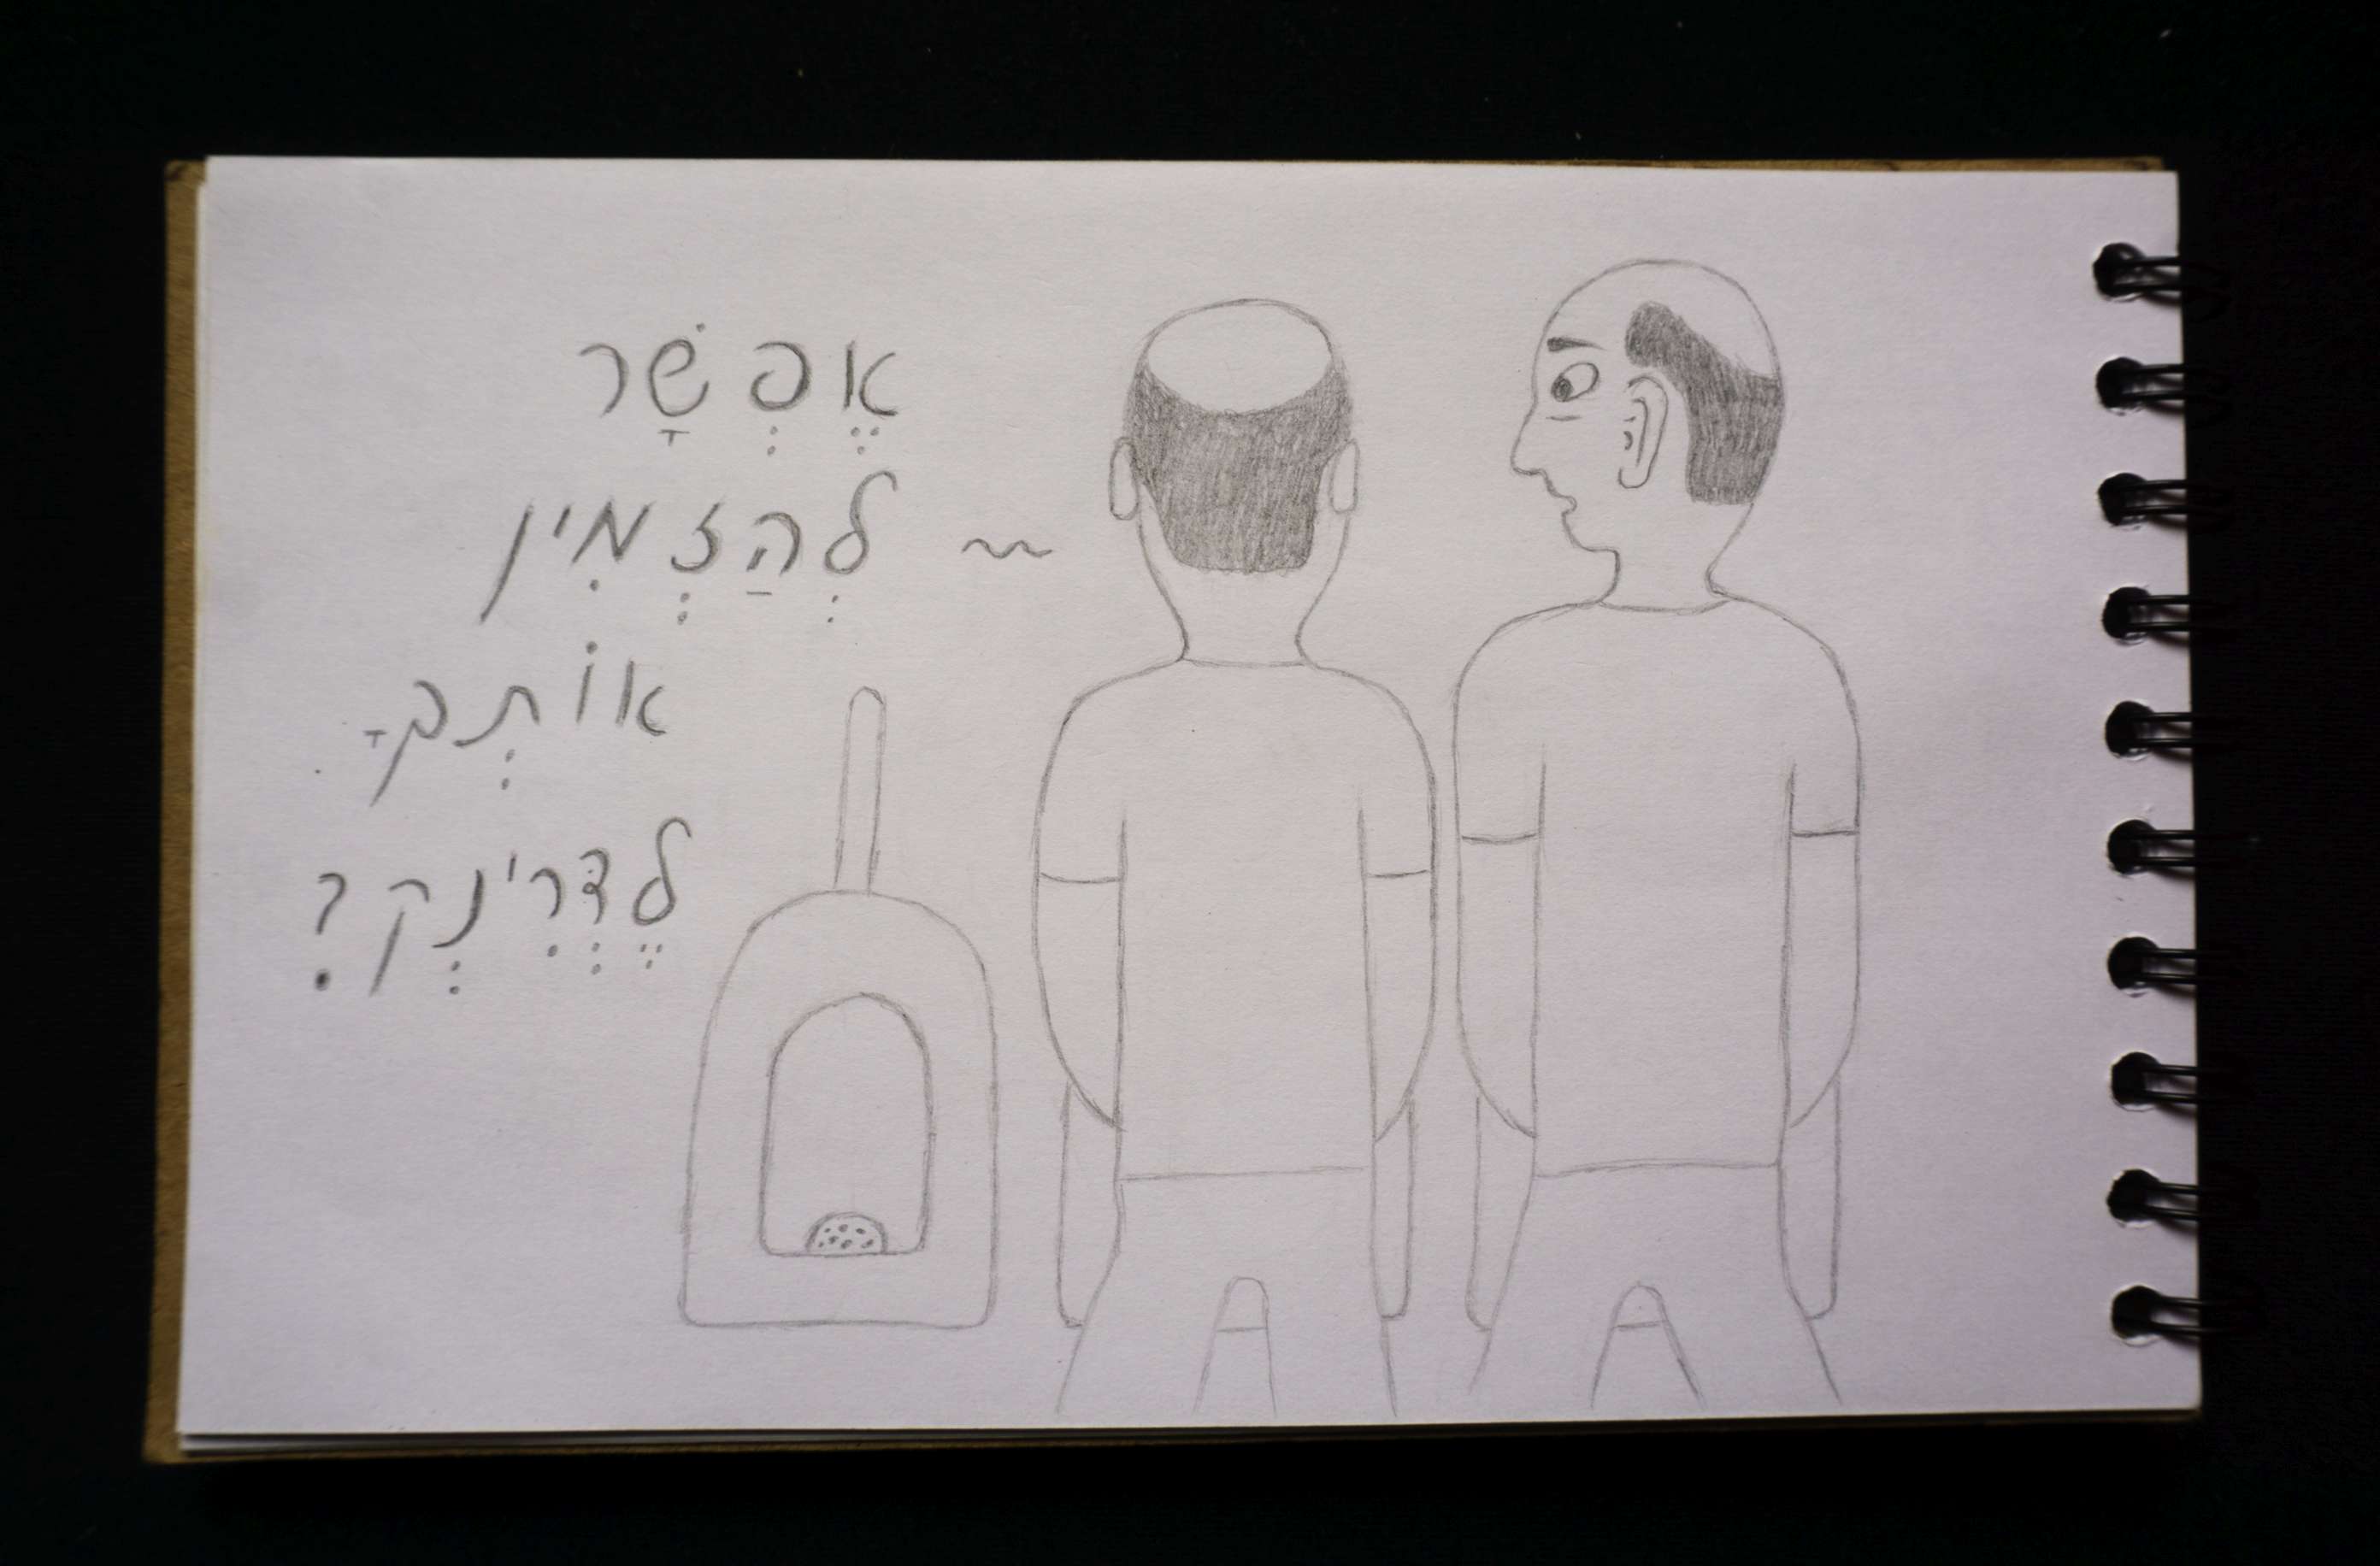 אֶפְשָׁר
לְהַזְמִין
אוֹתְךָ
לֶדְּרִינְק?